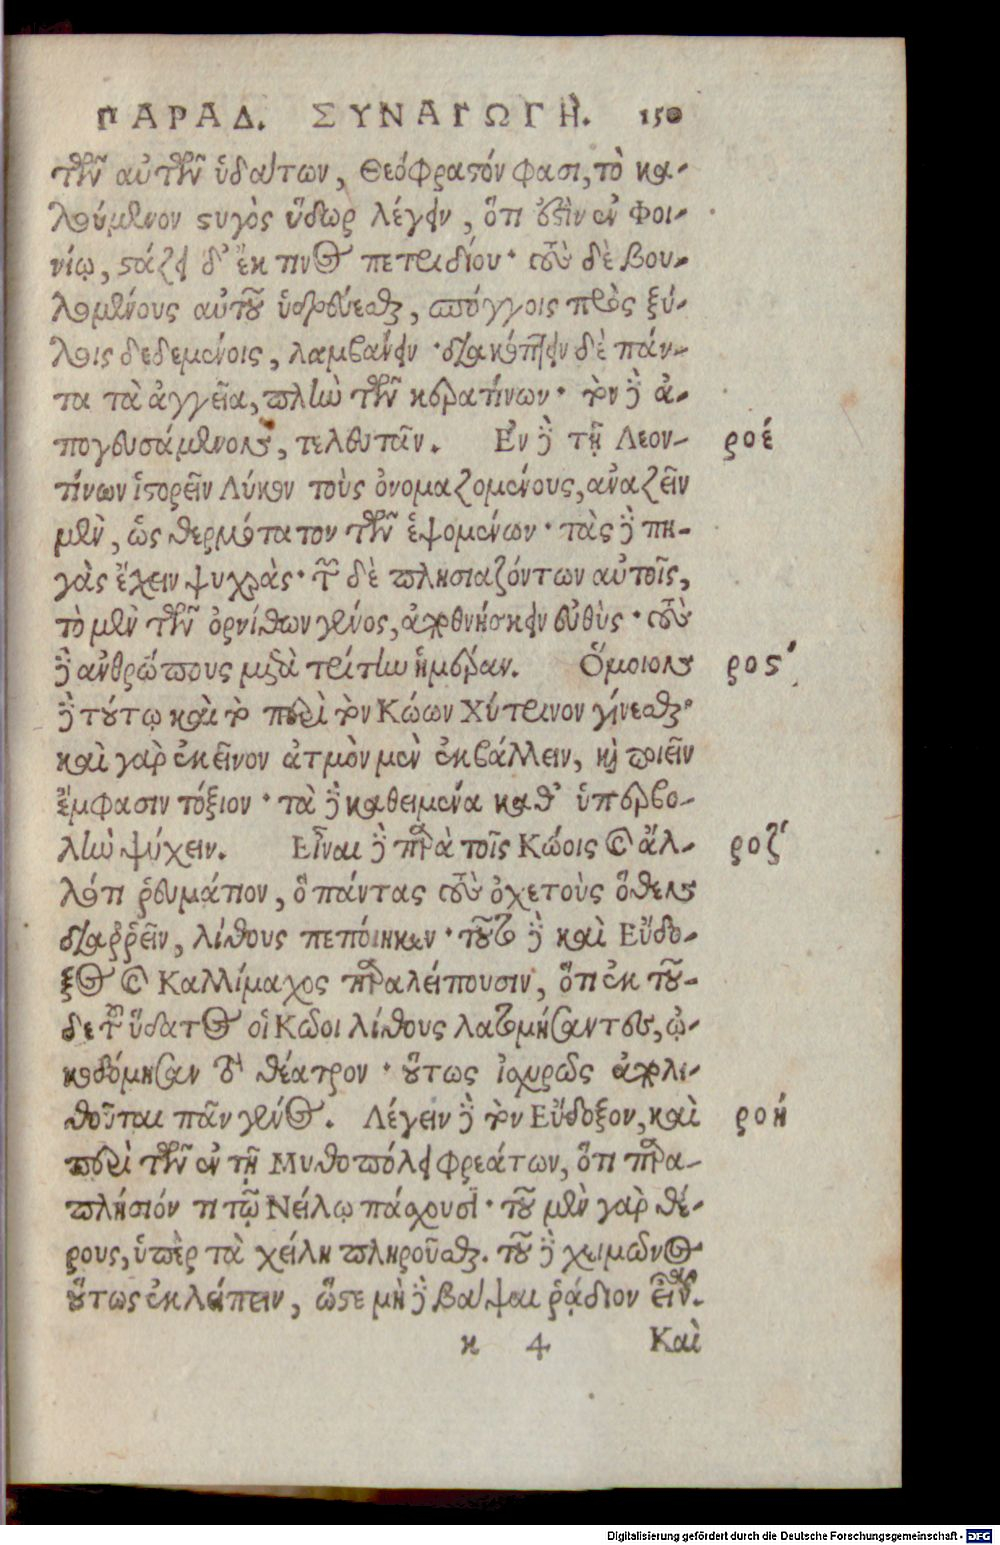 ΠΑΡΑΔ. ΣΥΝΑΓΩΓΗ. 150
τῶν αὐτῶν ὑδάτων, Θεόφραστόν φασι, τὸ κα-
λούμενον στυγὸς ὕδωρ λέγειν, ὅτι ἐστὶν ἐν Φοι-
νίῳ, στάζει δ' ἔκ τινος πετριδίου· τοὺς δὲ βου-
λομένους αὐτοῦ ὑδρεύεσθαι, σπόγγοις πρὸς ξύ-
λοις δεδεμένοις, λαμβάνειν· διακόπτειν δὲ πάν-
τα τὰ ἀγγεῖα, πλὴν τῶν κερατίνων· τὸν δὲ ἀ-
πογευσάμενον, τελευτᾶν. Εν δὲ τῇ Λεον- ροέ
τίνων ἱστορεῖν Λύκον τοὺς ὀνομαζομένους, ἀναζεῖν
μὲν, ὡς θερμότατον τῶν ἑψομένων· τὰς δὲ πη-
γὰς ἔχειν ψυχράς· τῶν δὲ πλησιαζόντων αὐτοῖς,
τὸ μὲν τῶν ὀρνίθων γένος, ἀποθνήσκειν εὐθὺς· τοὺς
δὲ ἀνθρώπους μετὰ τρίτην ἡμέραν. Ὅμοιον ρος'
δὲ τούτῳ καὶ τὸ περὶ τὸν Κώων Χύτρινον γίνεσθαι·
καὶ γὰρ ἐκεῖνον ἀτμὸν μὲν ἐκβάλλειν, καὶ ποιεῖν
ἔμφασιν τόξιον· τὰ δὲ καθειμένα καθ' ὑπερβο-
λὴν ψύχειν. Εἶναι δὲ παρὰ τοῖς Κώοις καὶ ἄλ- ροζ'
λό τι ῥευμάτιον, ὃ πάντας τοὺς ὀχετοὺς ὅθεν
διαῤῥεῖν, λίθους πεποίηκεν· τοῦτο δὲ καὶ Εὔδο-
ξος καὶ Καλλίμαχος παραλείπουσιν, ὅτι ἐκ τού-
δε τοῦ ὕδατος οἱ Κῶοι λίθους λατομήσαντες, ᾠ-
κοδόμησαν τὸ θέατρον· οὕτως ἰσχυρῶς ἀπολι-
θοῦται πᾶν γένος. Λέγειν δὲ τὸν Εὔδοξον, καὶ ροή
περὶ τῶν ἐν τῇ Μυθοπόλει φρεάτων, ὅτι παρα-
πλήσιόν τι τῷ Νείλῳ πάσχουσι· τοῦ μὲν γὰρ θέ-
ρους, ὑπὲρ τὰ χείλη πληροῦσθαι. τοῦ δὲ χειμῶνος
οὕτως ἐκλείπειν, ὥστε μὴ δὲ βάψαι ῥᾴδιον εἶναι.
κ 4 Καὶ
Digitalisierung gefördert durch die Deutsche Forschungsgemeinschaft - DFG